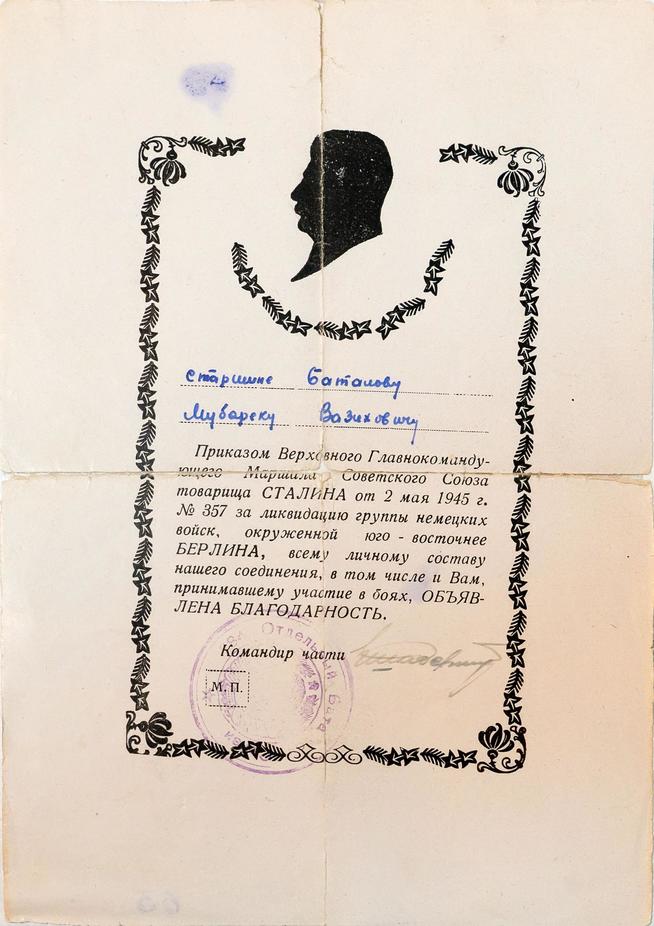 старшине Баталову
Мубареку Вазиховичу
Приказом Верховного Главнокоманду-
ющего Маршала Советского Союза
товарища СТАЛИНА от 2 мая 1945 г.
№ 357 за ликвидацию группы немецких
войск, окруженной юго - восточнее
БЕРЛИНА, всему личному составу
нашего соединения, в том числе и Вам,
принимавшему участие в боях, ОБЪЯВ-
ЛЕНА БЛАГОДАРНОСТЬ.
Командир части
М. П.
Отдельный Бата